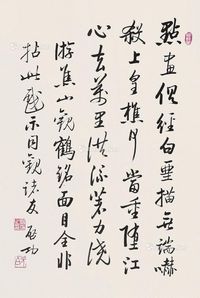 點畫似經白堊描無端嚇
殺上皇樵月當重墮江
心去萬里洪流著力澆
游焦山觀鶴銘面目全非
拈此戲示同觀諸友 啟功